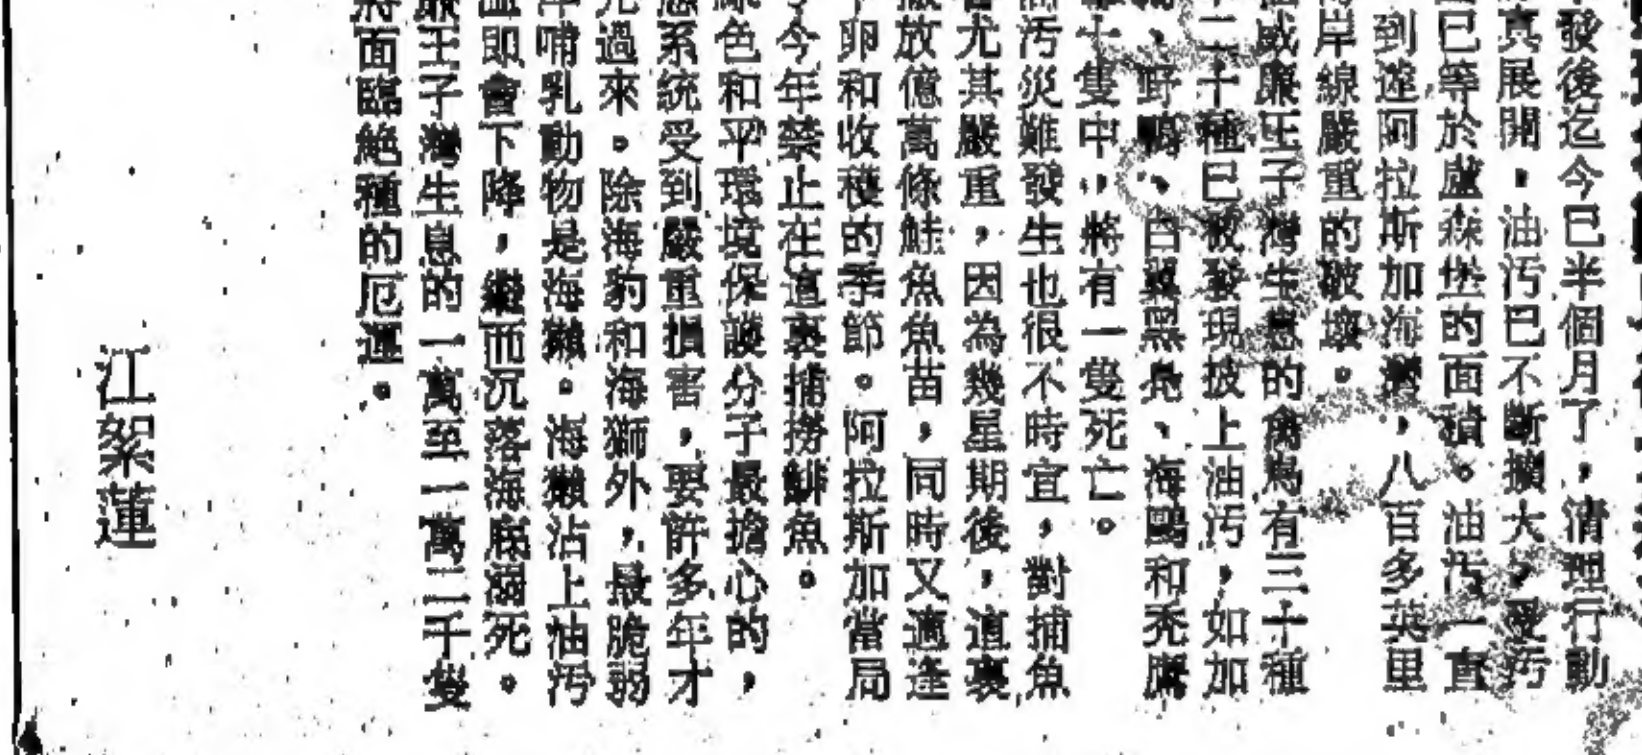 發後迄今已半個月了，清理行動
真展開，油污已不斷擴大，受污
已等於盧森堡的面積。油污一直
到達阿拉斯加海灣，八百多英里
岸線嚴重的破壞。
威廉王子灣生息的禽鳥有三十種
二十種已被發現披上油污，如加
、野鴨、白翼黑鳧、海鷗和禿鷹
十隻中，將有一隻死亡。
污災難發生也很不時宜，對捕魚
尤其嚴重，因為幾星期後，這裏
放億萬條鮭魚魚苗，同時又適逢
卵和收穫的季節。阿拉斯加當局
今年禁止在這裏捕撈鯡魚。
色和平環境保護分子最擔心的，
系統受到嚴重損害，要許多年才
過來。除海豹和海獅外，最脆弱
哺乳動物是海獺。海獺沾上油污
即會下降，繼而沉落海底溺死。
王子灣生息的一萬至一萬三千隻
將面臨絕種的厄運。
江絮蓮